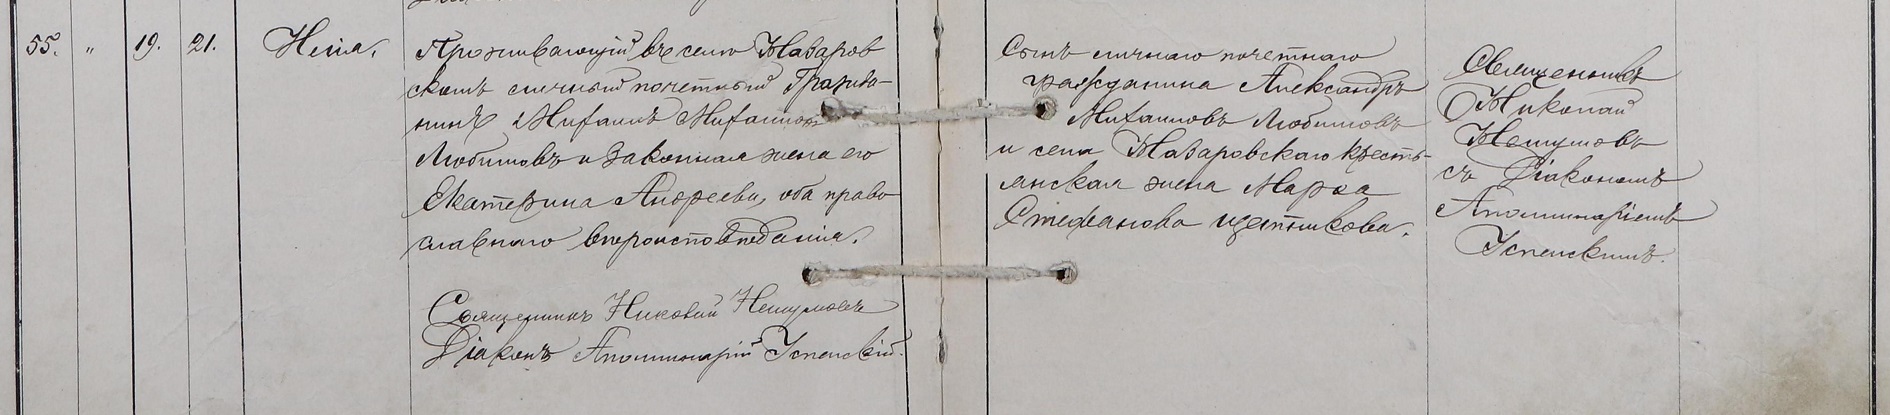 55. " 19. 21. Нина.
Проживающій въ селѣ Назаров
скомъ личный почетный Гражда-
нинъ Михаилъ Михаиловъ
Любимовъ и законная жена его
Екатерина Андреева, оба право
славнаго вѣроисповѣданія.
Священникъ Николай Нешумовъ
Діаконъ Апоминарій Успенскій.
Сынъ личнаго почетнаго
гражданина Александръ
Михаиловъ Любимовъ
и села Назаровскаго кресть-
янская жена Марѳа
Стефанова Щетникова.
Священникъ
Николай
Нешумовъ
съ Діакономъ
Апоминаріемъ
Успенскимъ.